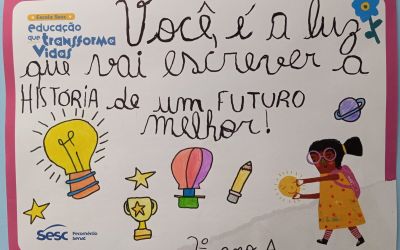 Escola Sesc
educação
que transforma
Vidas
Você, é a luz
que vai escrever a
HISTÓRIA de um FUTURO
melhor!
Sesc
Fecomércio
Senac
2º ano A